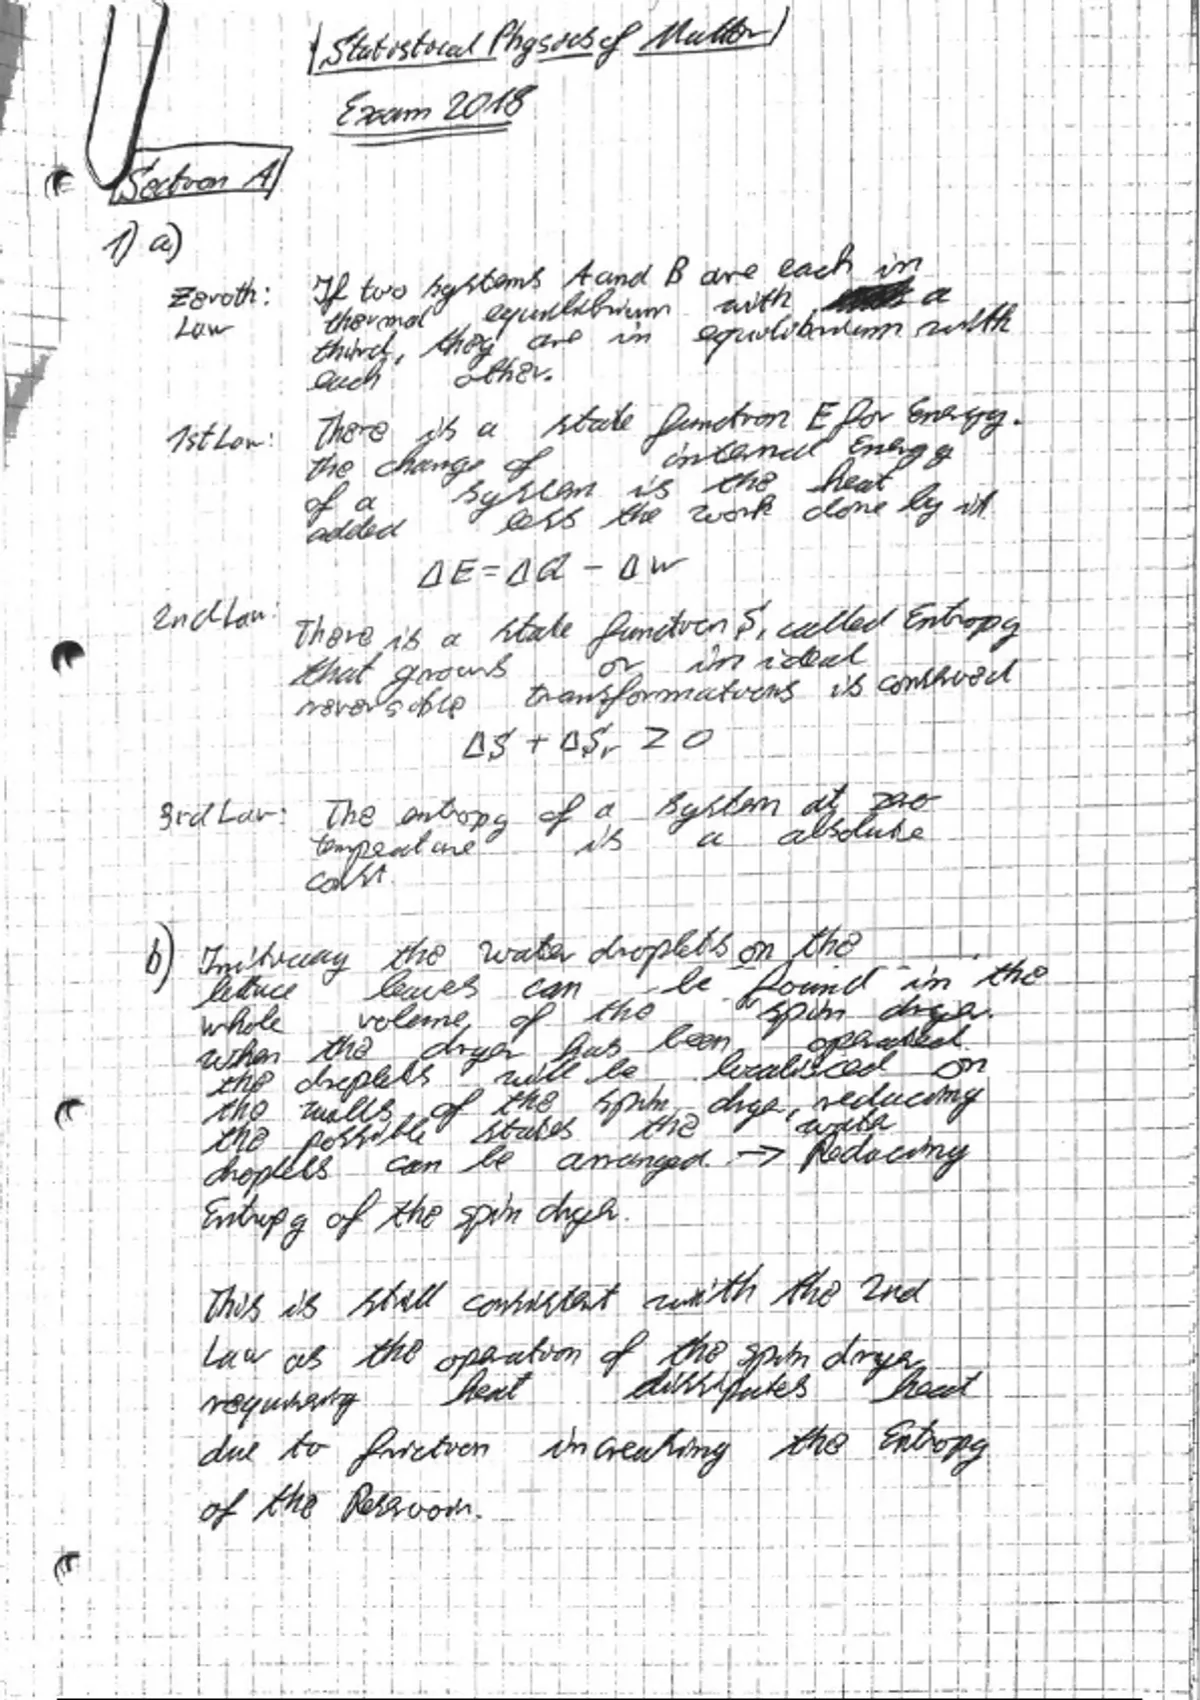 Statistical Physics of Matter
Exam 2018
Section A
1) a)
Zeroth: If two systems A and B are each in
Law thermal equilibrium with a
third, they are in equilibrium with
each other.
1st Law: There is a state function E for Energy.
the change of internal Energy
of a system is the heat
added less the work done by it
ΔE = ΔQ - ΔW
2nd Law: There is a state function S, called Entropy
that grows or in ideal
reversible transformations is conserved
ΔS + ΔSr ≥ 0
3rd Law: The entropy of a system at zero
temperature is a absolute
const.
b) Initially the water droplets on the
lettuce leaves can be found in the
whole volume of the spin dryer.
when the dryer has been operated.
the droplets will be localised on
the walls of the spin dryer, reducing
the possible states the water
droplets can be arranged. → Reducing
Entropy of the spin dryer.
This is still consistent with the 2nd
Law as the operation of the spin dryer
requiring heat dissipates heat
due to friction increasing the Entropy
of the Reservoir.